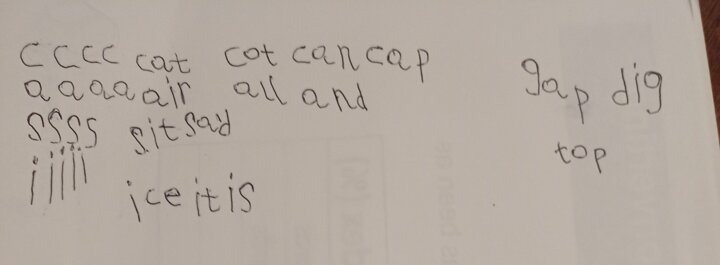 c c c c cat cot can cap
a a a a air all and
s s s s sit sad
i i i i i ice it is
gap dig
top